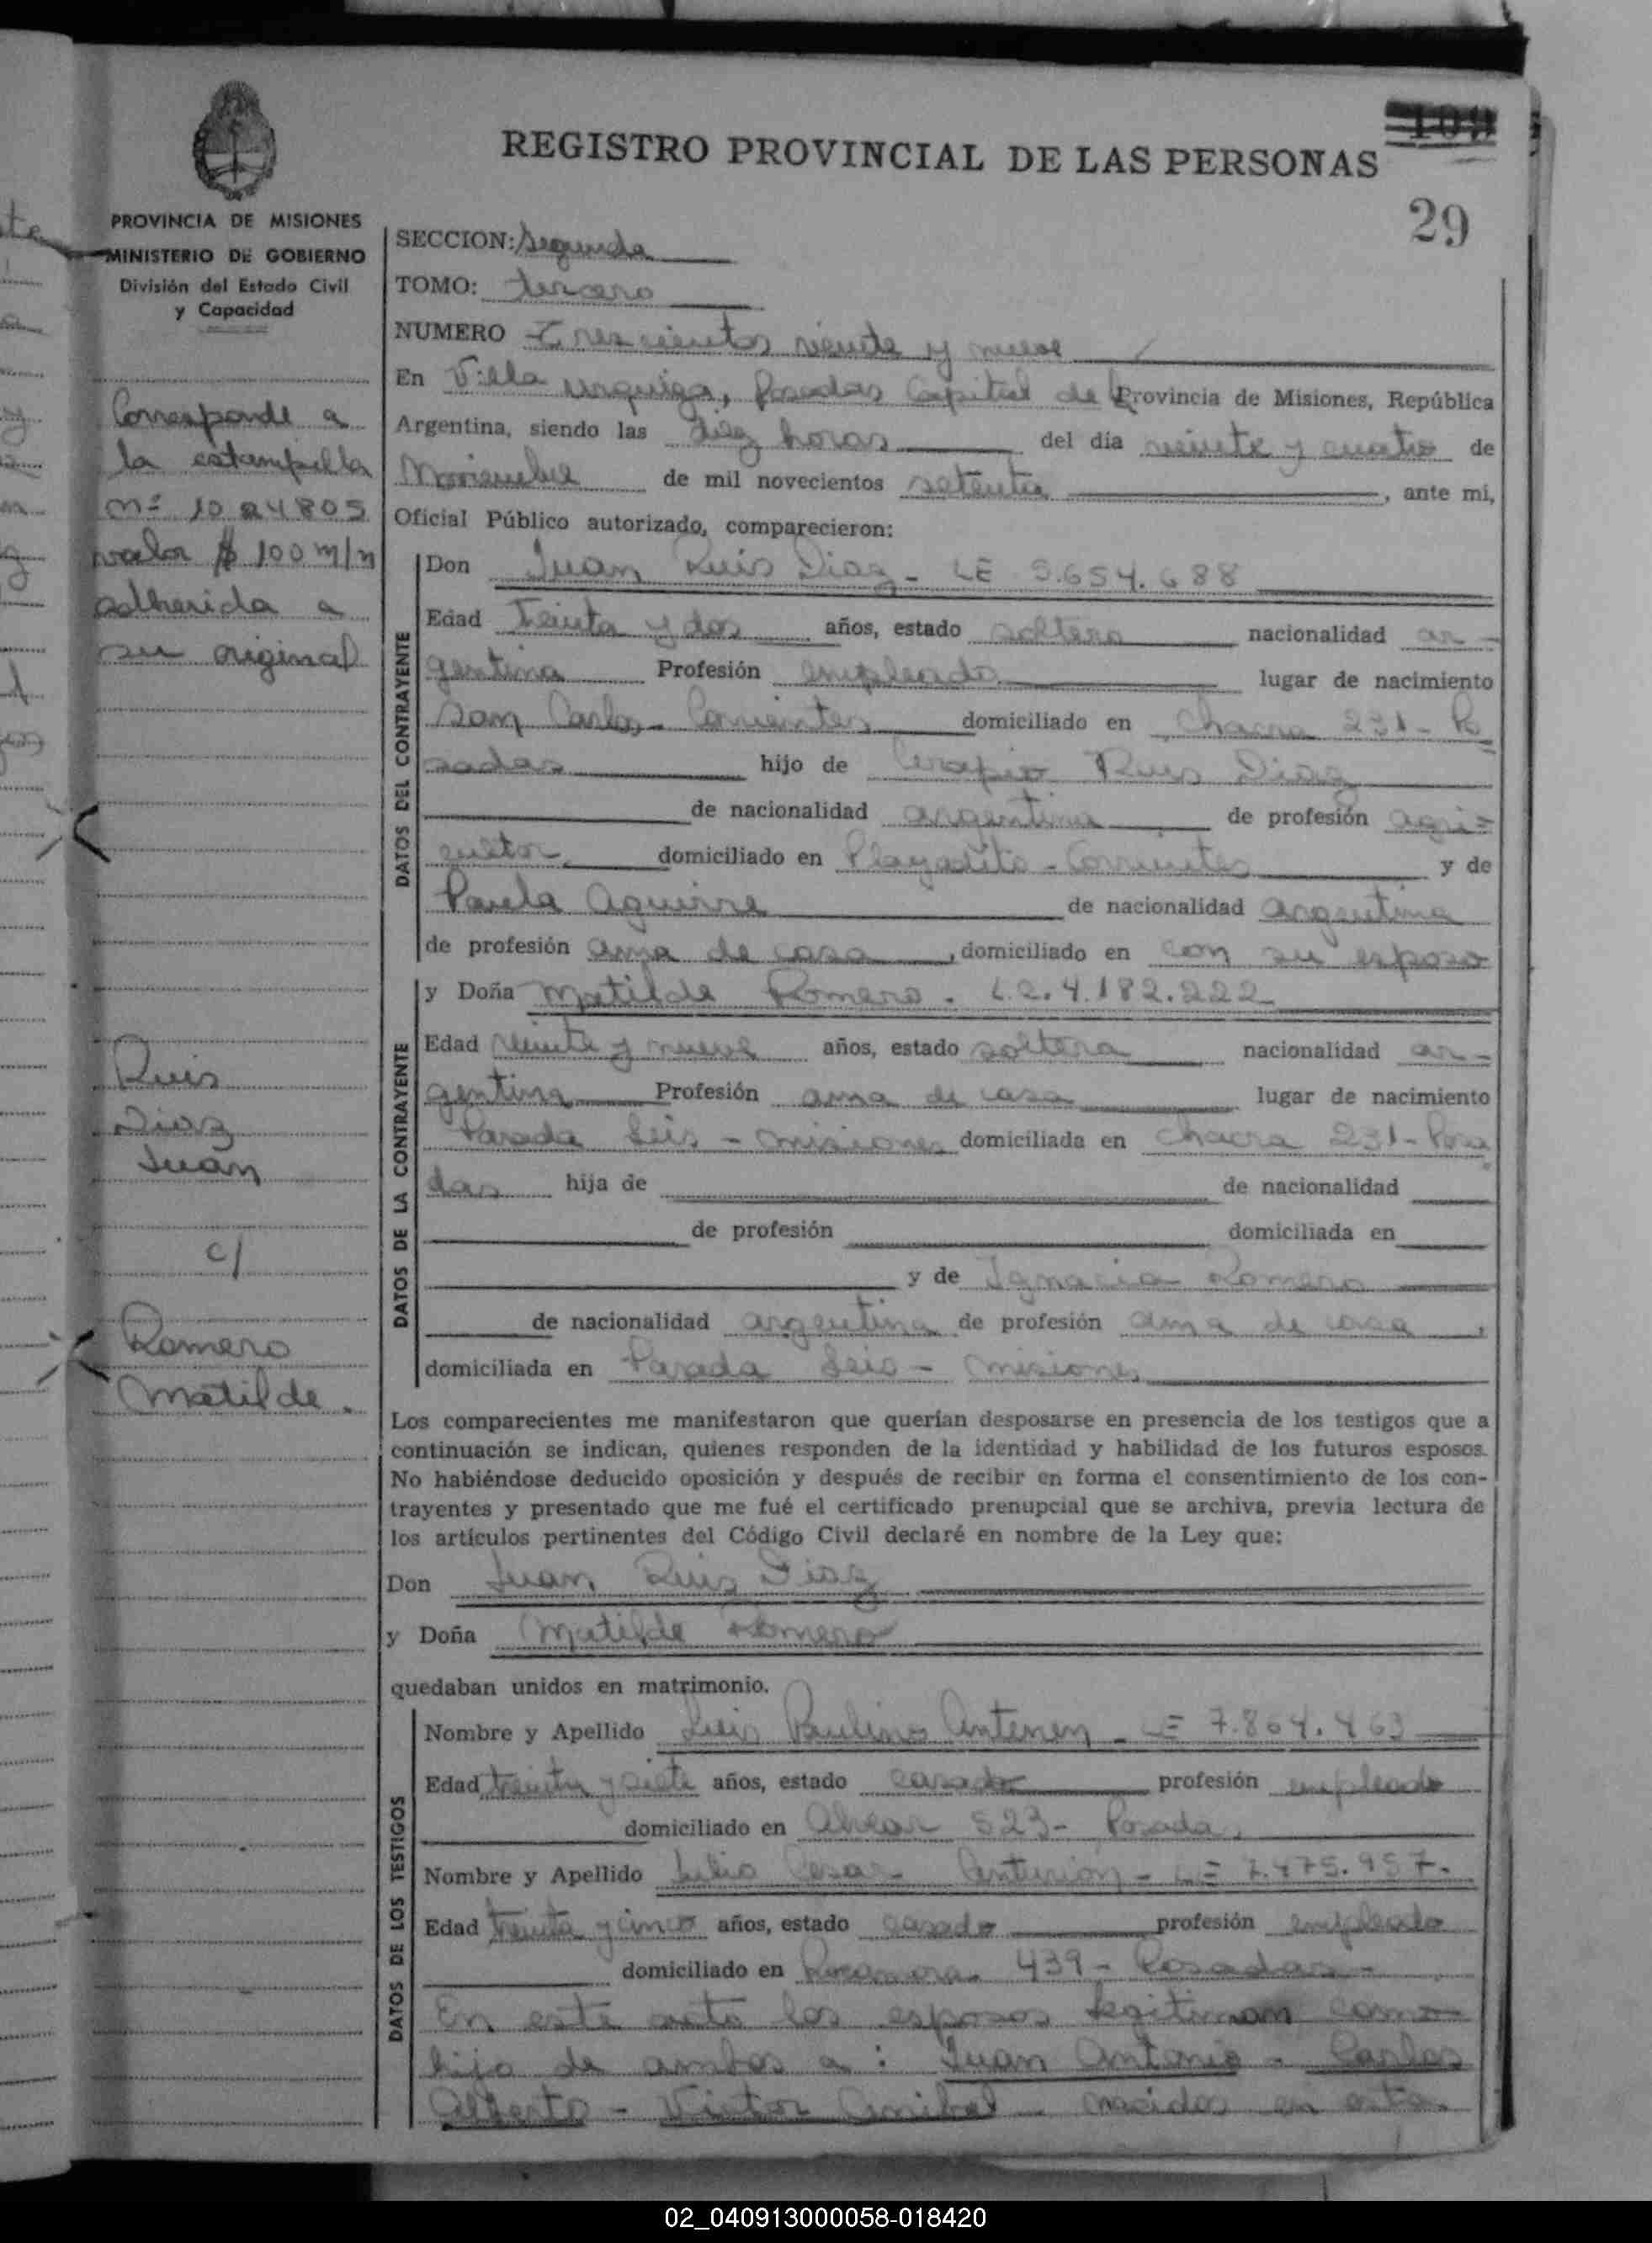 109
REGISTRO PROVINCIAL DE LAS PERSONAS
29
PROVINCIA DE MISIONES
MINISTERIO DE GOBIERNO
División del Estado Civil
y Capacidad
Corresponde a
la estampilla
nº 1024805
valor $ 100 m/n
adherida a
su original
Ruis
Diaz
Juan
c/
Romero
Matilde.
SECCION: Segunda
TOMO: tercero
NUMERO Trescientos veinte y nueve
En Villa Urquiza, Posadas Capital de Provincia de Misiones, República
Argentina, siendo las diez horas del día veinte y cuatro de
Noviembre de mil novecientos setenta, ante mí,
Oficial Público autorizado, comparecieron:
DATOS DEL CONTRAYENTE
Don Juan Ruis Diaz - LE 5.654.688
Edad treinta y dos años, estado soltero nacionalidad ar-
gentina Profesión empleado lugar de nacimiento
San Carlos - Corrientes domiciliado en Chacra 231 - Po
sadas hijo de Serapio Ruis Diaz
de nacionalidad argentina de profesión agri-
cultor domiciliado en Playadito - Corrientes y de
Paula Aguirre de nacionalidad argentina
de profesión ama de casa, domiciliado en con su esposo
DATOS DE LA CONTRAYENTE
y Doña Matilde Romero. L.C. 4.182.222
Edad veinte y nueve años, estado soltera nacionalidad ar-
gentina Profesión ama de casa lugar de nacimiento
Parada Leis - Misiones domiciliada en Chacra 231 - Posa
das hija de de nacionalidad
de profesión domiciliada en
y de Ignacia Romero
de nacionalidad argentina de profesión ama de casa,
domiciliada en Parada Leis - Misiones
Los comparecientes me manifestaron que querían desposarse en presencia de los testigos que a
continuación se indican, quienes responden de la identidad y habilidad de los futuros esposos.
No habiéndose deducido oposición y después de recibir en forma el consentimiento de los con-
trayentes y presentado que me fué el certificado prenupcial que se archiva, previa lectura de
los artículos pertinentes del Código Civil declaré en nombre de la Ley que:
Don Juan Ruis Diaz
y Doña Matilde Romero
quedaban unidos en matrimonio.
DATOS DE LOS TESTIGOS
Nombre y Apellido Luis Paulino Antenen - LE 7.864.463
Edad treinta y siete años, estado casado profesión empleado
domiciliado en Alvear 523 - Posadas
Nombre y Apellido Julio Cesar Centurión - LE 7.475.957.
Edad treinta y cinco años, estado casado profesión empleado
domiciliado en Rocamora 439 - Posadas -
En este acto los esposos legitiman como
hijo de ambos a: Juan Antonio - Carlos
Alberto - Victor Anibal - nacidos en esta
02_040913000058-018420